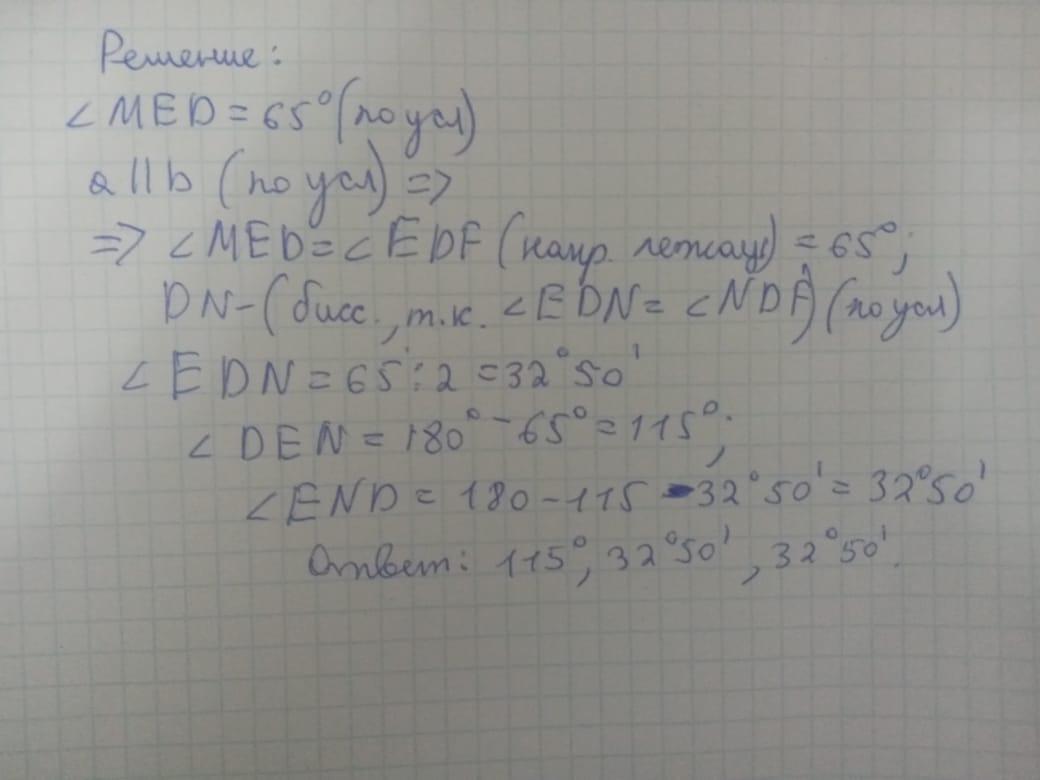 Решение:
∠MED = 65° (по усл)
a || b (по усл) =>
=> ∠MED = ∠EDF (накр. лежащ) = 65°;
DN - (бисс., т.к. ∠EDN = ∠NDF) (по усл)
∠EDN = 65 : 2 = 32°50'
∠DEN = 180° - 65° = 115°;
∠END = 180 - 115 - 32°50' = 32°50'
Ответ: 115°, 32°50', 32°50'.